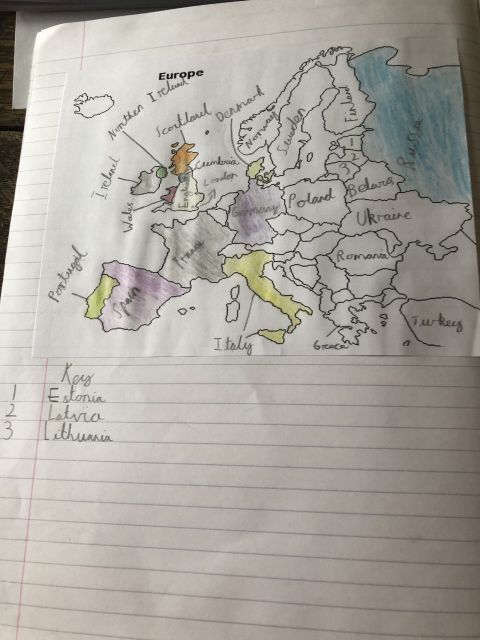 Europe
Northen Ireland
Scotland
Denmark
Norway
Sweden
Finland
Russia
Ireland
Cumbria
London
Wales
England
1
2
3
Belarus
Germany
Poland
Ukraine
France
Romania
Portugal
Spain
Italy
Greece
Turkey
Key
1 Estonia
2 Latvia
3 Lithuania